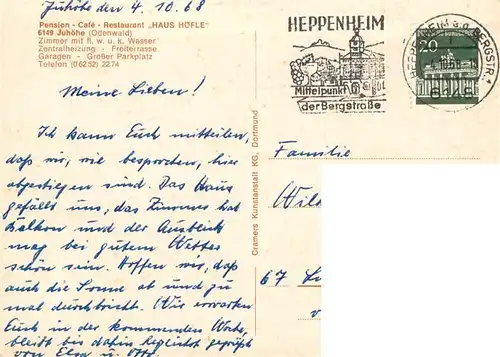 Juhöhe den 4.10.68
Pension - Café - Restaurant „HAUS HÖFLE"
6149 Juhöhe (Odenwald)
Zimmer mit fl. w. u. k. Wasser
Zentralheizung - Freiterrasse
Garagen - Großer Parkplatz
Telefon (0 62 52) 22 74
Meine Lieben!
Ich kann Euch mitteilen,
daß wir, wie besprochen, hier
abgestiegen sind. Das Haus
gefällt uns, das Zimmer hat
Balkon und der Ausblick
mag bei gutem Wetter
schön sein. Hoffen wir, daß
auch die Sonne ab und zu
mal durchbricht. Wir erwarten
Euch in der kommenden Woche,
bleibt bis dahin herzlichst gegrüßt
von Elsa u. Otto
Cramers Kunstanstalt KG, Dortmund
HEPPENHEIM
Mittelpunkt
der Bergstraße
HEPPENHEIM a.d. BERGSTR
20
6148
Familie
Wil
67